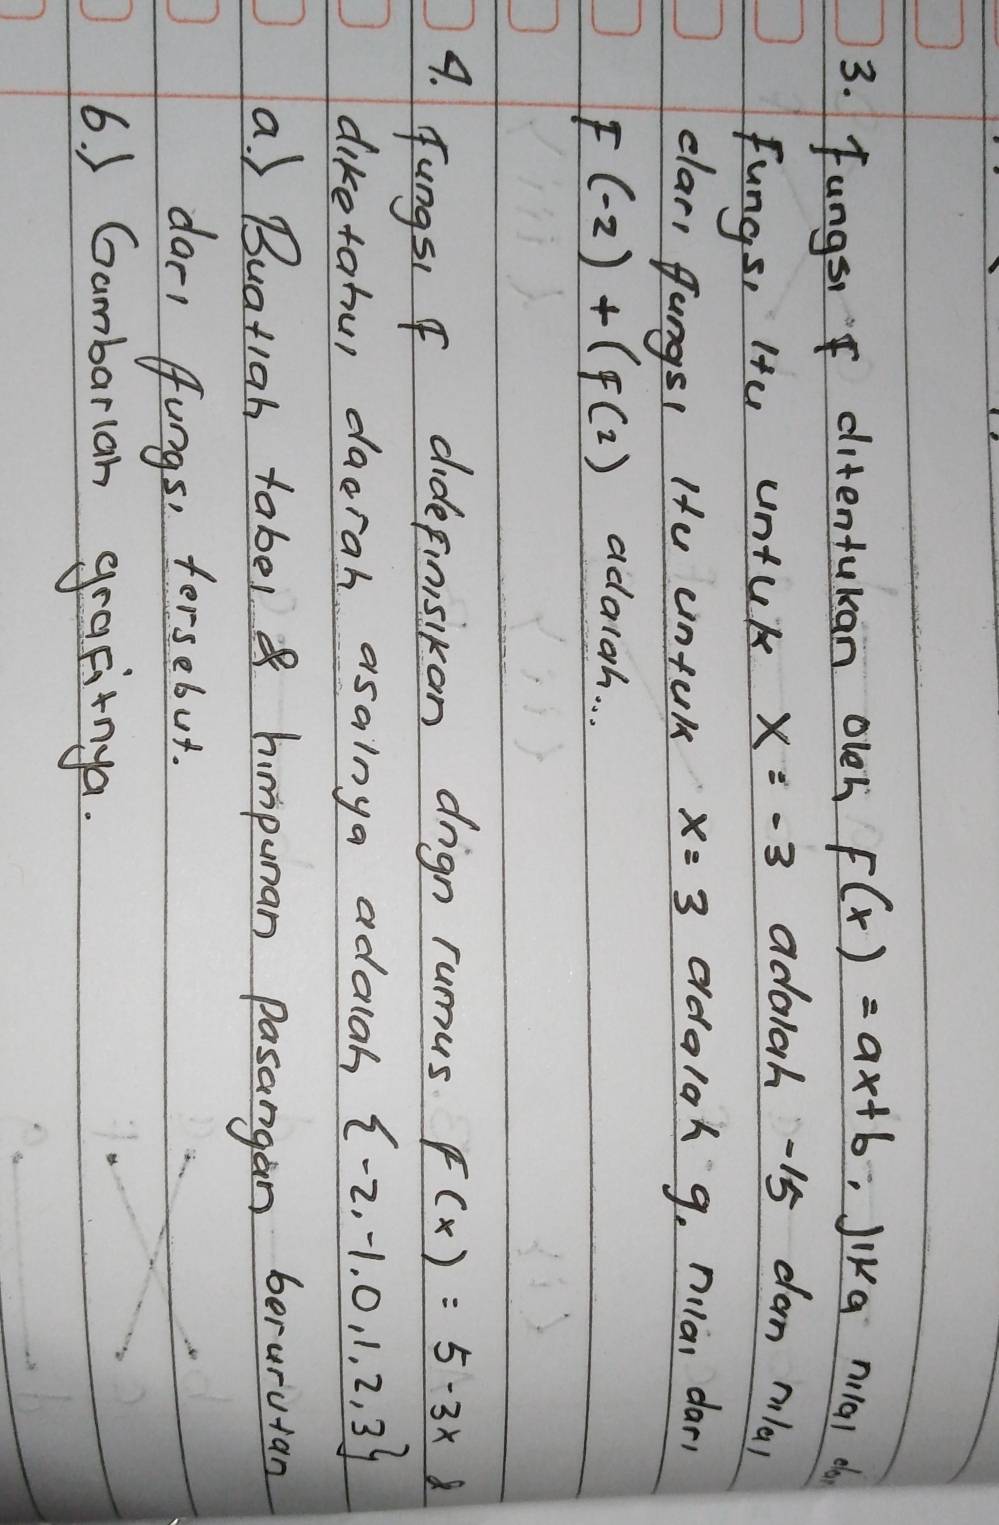 3. fungsi f ditentukan oleh F(x) = ax+b, Jika nilai dari
fungsi itu untuk x = -3 adalah -15 dan nilai
dari fungsi itu untuk x = 3 adalah 9, nilai dari
F (-2) + (F(2) adalah...
4. fungsi f didefinisikan dngn rumus F(x) = 5-3x &
diketahui daerah asalnya adalah {-2,-1,0,1,2,3}
a.) Buatlah tabel & himpunan pasangan berurutan
dari fungsi tersebut.
b.) Gambarlah grafitnya.